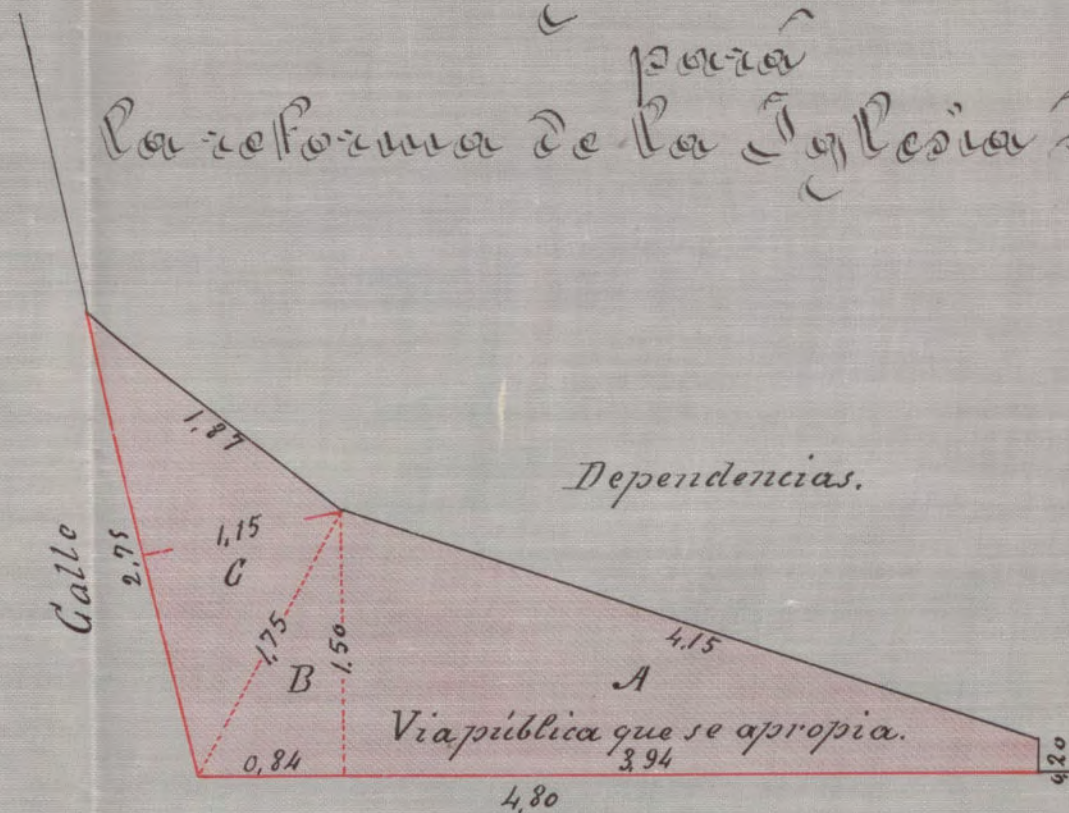 y
para
la reforma de la Iglesia
1,87
Dependencias.
Calle
2,75
1,15
C
1,75
1,50
B
4,15
A
Via pública que se apropia.
0,84
3,94
0,20
4,80